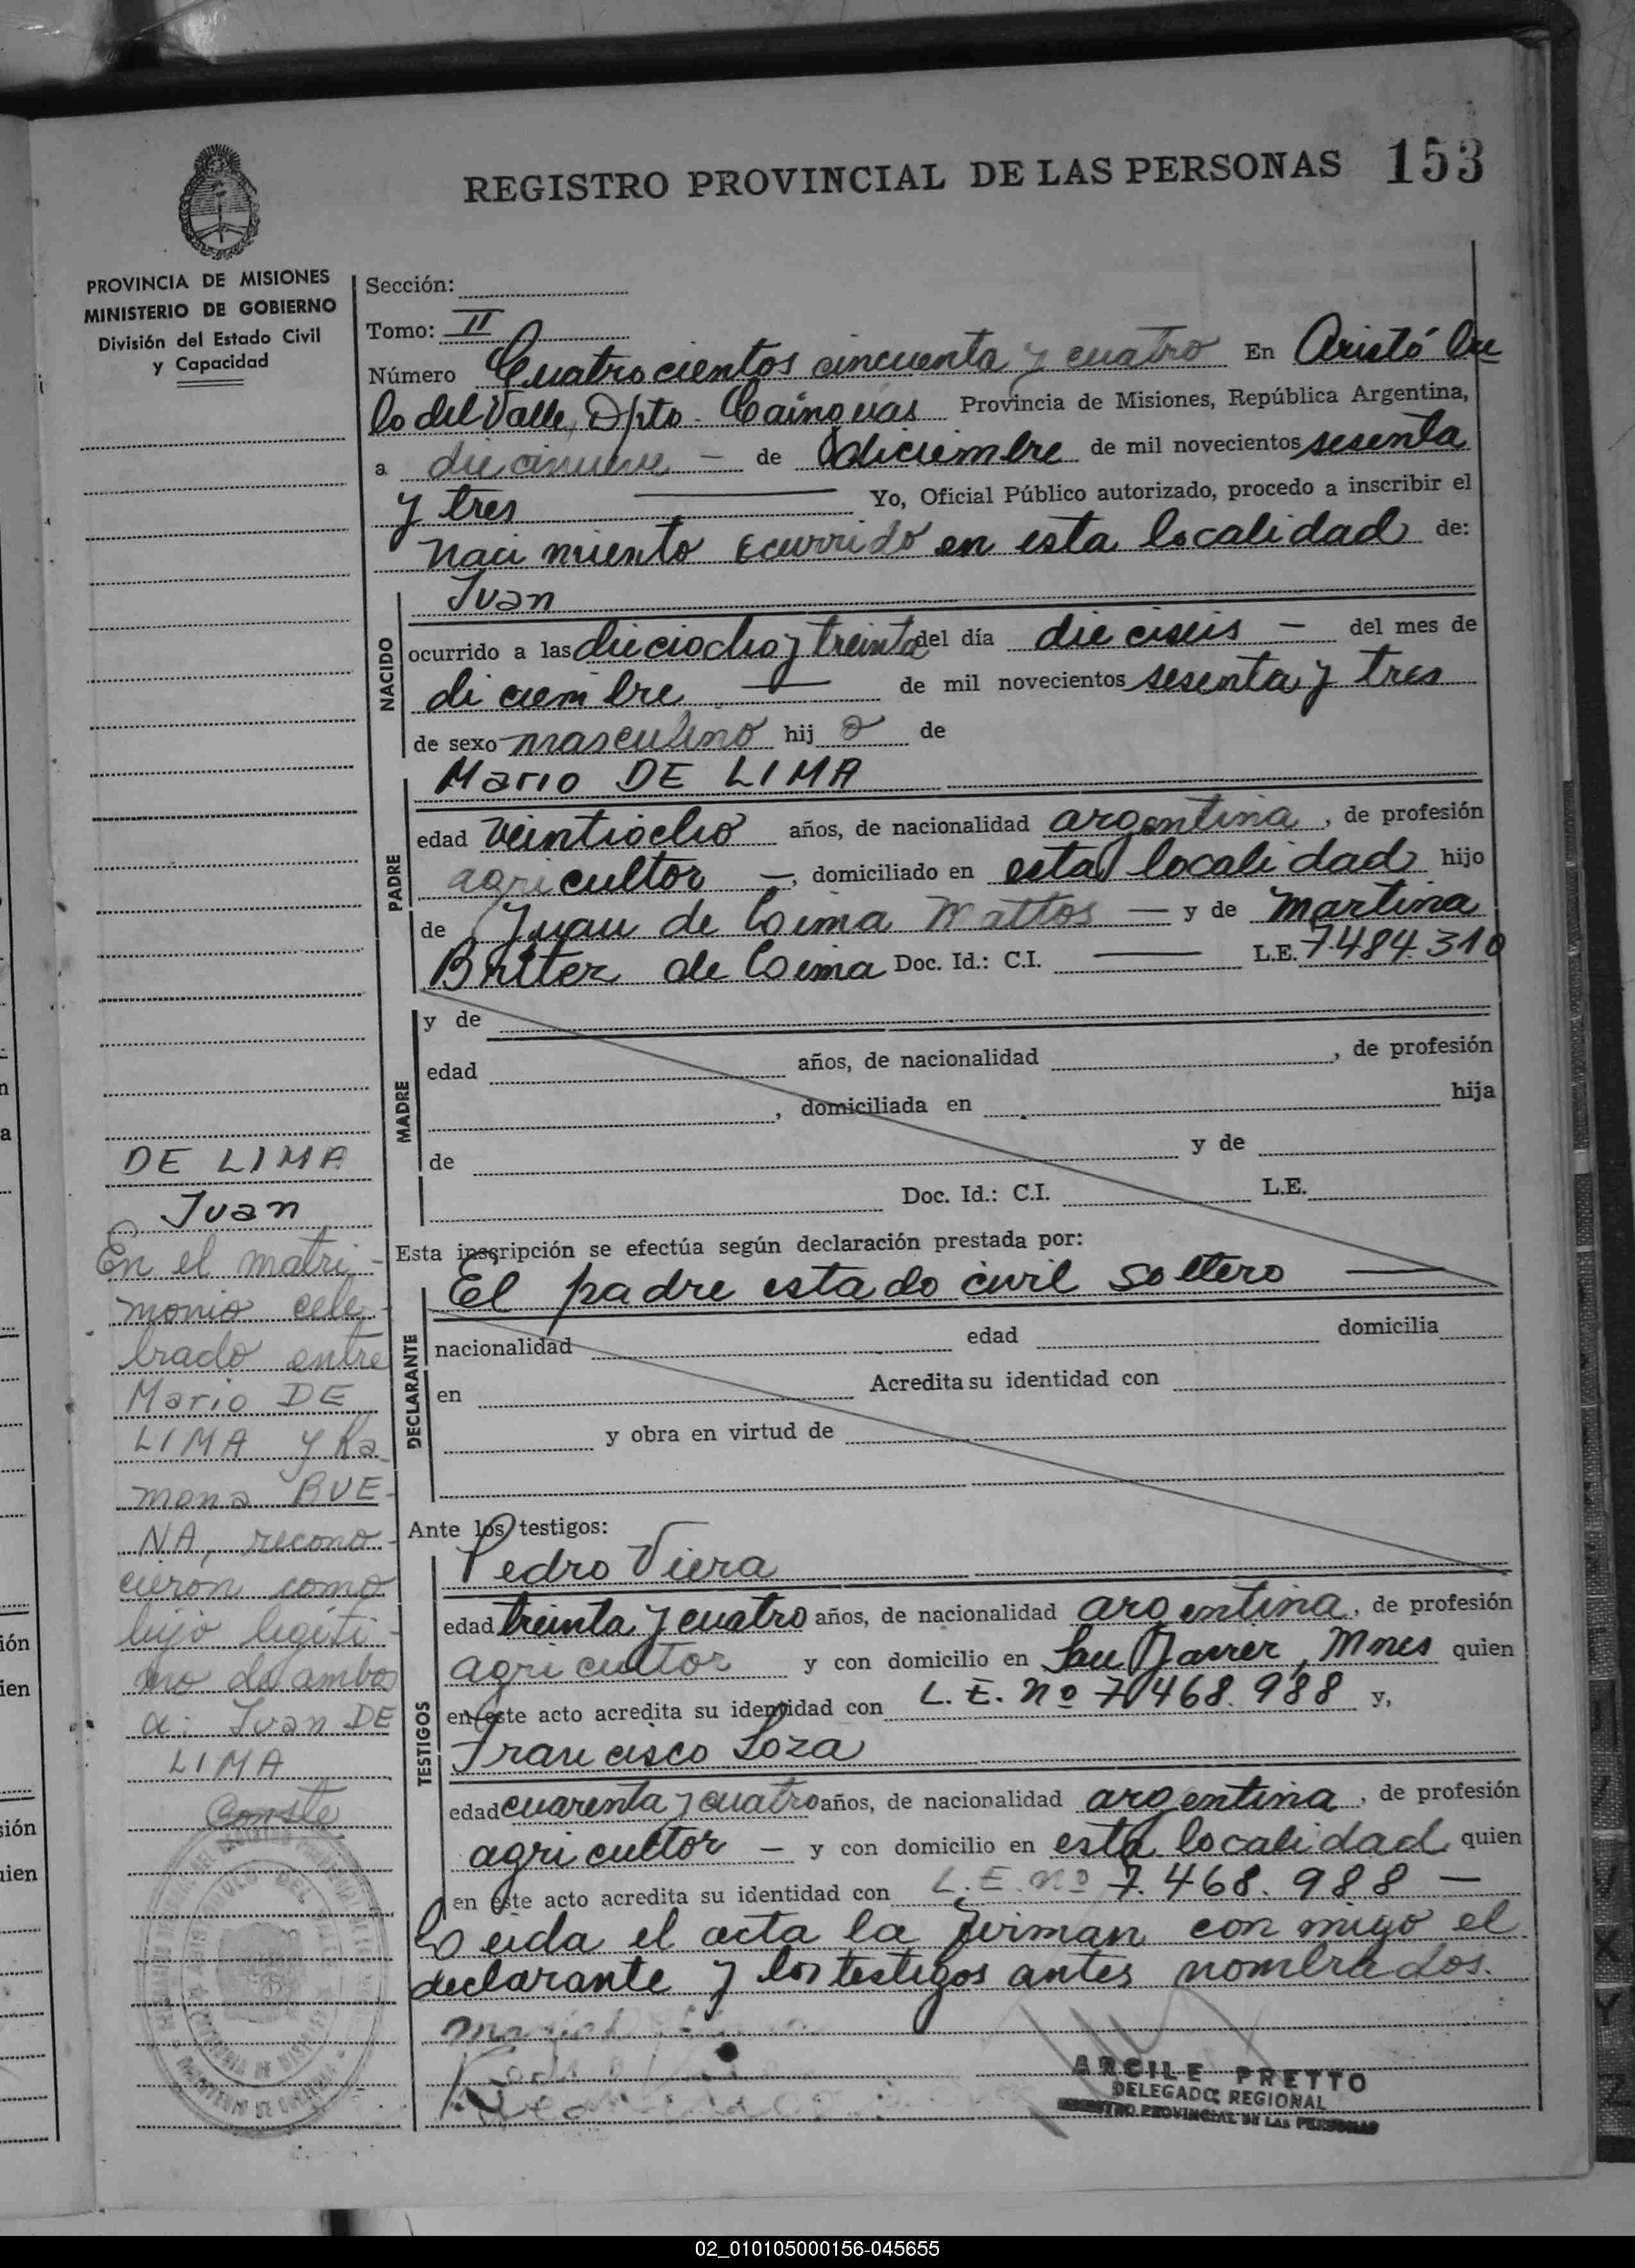 REGISTRO PROVINCIAL DE LAS PERSONAS 153
PROVINCIA DE MISIONES
MINISTERIO DE GOBIERNO
División del Estado Civil
y Capacidad
Sección:
Tomo: II
Número Cuatrocientos cincuenta y cuatro En Aristó bu
lo del Valle, Dpto. Cainguás Provincia de Misiones, República Argentina,
a diecinueve — de diciembre de mil novecientos sesenta
y tres — Yo, Oficial Público autorizado, procedo a inscribir el
naci miento ocurrido en esta localidad de:
NACIDO
Juan
ocurrido a las dieciocho y treinta del día dieciseis — del mes de
diciembre — de mil novecientos sesenta y tres
de sexo masculino hij o de
PADRE
Mario DE LIMA
edad veintiocho años, de nacionalidad argentina, de profesión
agricultor —, domiciliado en esta localidad hijo
de Juan de Lima Mattos — y de Martina
Briter de Lima Doc. Id.: C.I. — L.E. 7.484.310
MADRE
y de
edad años, de nacionalidad , de profesión
, domiciliada en hija
de y de
Doc. Id.: C.I. L.E.
Esta inscripción se efectúa según declaración prestada por:
DECLARANTE
El padre estado civil soltero —
nacionalidad edad domicilia
en Acredita su identidad con
y obra en virtud de
Ante los testigos:
TESTIGOS
Pedro Viera
edad treinta y cuatro años, de nacionalidad argentina, de profesión
agricultor y con domicilio en San Javier, Mnes quien
en este acto acredita su identidad con L.E. nº 7.468.988 y,
Francisco Loza
edad cuarenta y cuatro años, de nacionalidad argentina, de profesión
agricultor — y con domicilio en esta localidad quien
en este acto acredita su identidad con L.E. nº 7.468.988 —
Leida el acta la firman con migo el
declarante y los testigos antes nombrados.
ARCILE PRETTO
DELEGADO REGIONAL
REGISTRO PROVINCIAL DE LAS PERSONAS
DE LIMA
Juan
En el matri-
monio cele-
brado entre
Mario DE
LIMA y Ra
mona BUE-
NA, recono-
cieron como
hijo legíti-
mo de ambos
a: Juan DE
LIMA
Conste
02_010105000156-045655